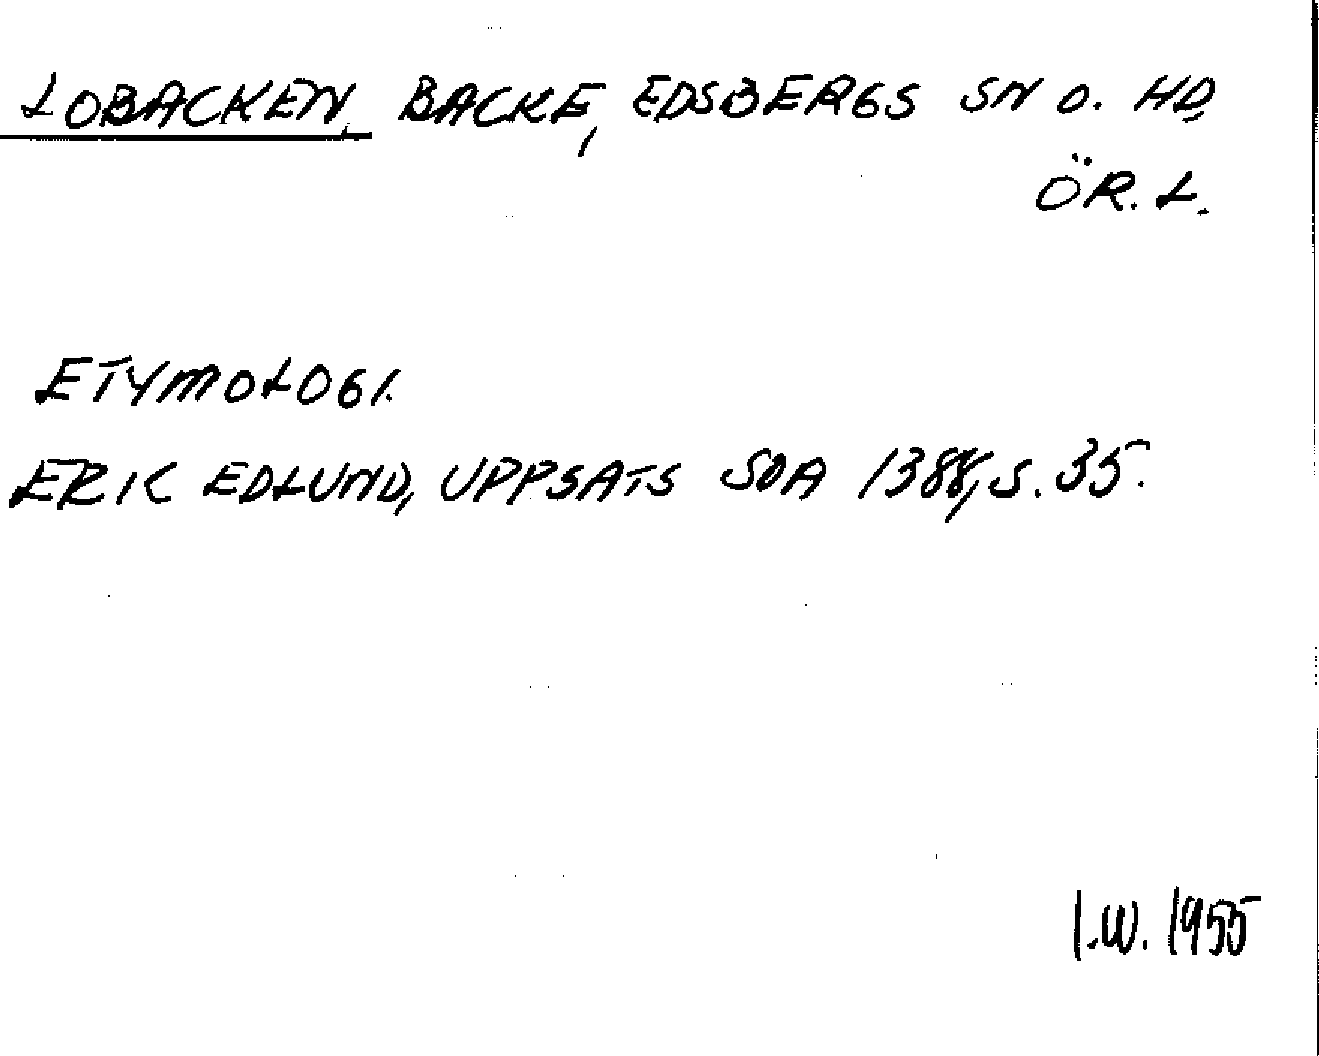 LOBACKEN, BACKE, EDSBERGS SN O. HD,
ÖR. L.
ETYMOLOGI.
ERIK EDLUND, UPPSATS SOA 1388, S. 35.
I.W. 1955